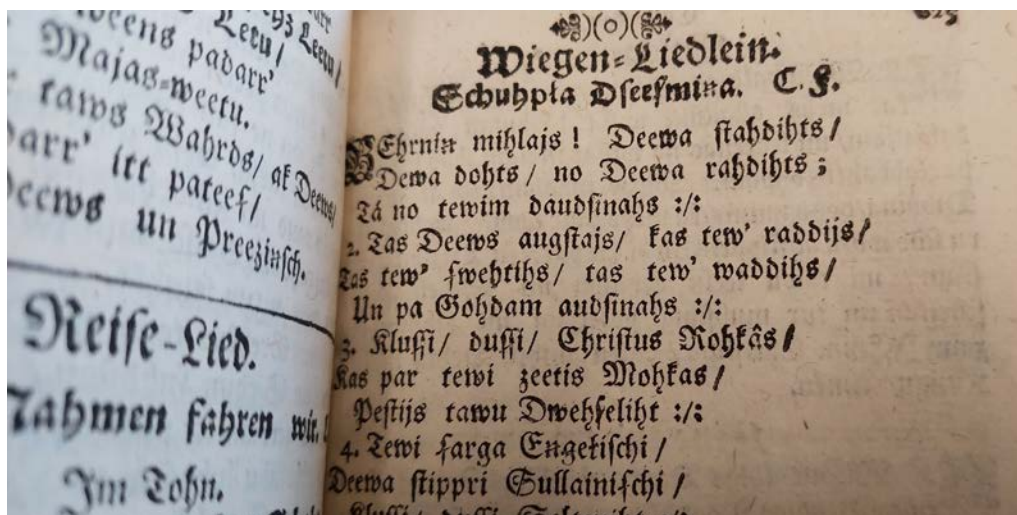 Leetu/
Majas-weetu.
taws Wahrds/ ak Deews/
itt pateef/
un Preezinsch.
Reise-Lied.
Nahmen fahren wir.
Im Tohn.
Wiegen-Liedlein.
Schuhpła Dſeeſmina. C. F.
BEhrnin mihļajs ! Deewa ſtahdihts /
Dewa dohts / no Deewa rahdihts ;
Tá no tewim daudſinahs :/:
2. Tas Deews augſtajs/ kas tew' raddijs/
Tas tew' ſwehtihs/ tas tew' waddihs/
Un pa Gohdam audſinahs :/:
3. Kluſſi/ duſſi/ Chriſtus Rohkâs/
Kas par tewi zeetis Mohkas/
Peſtijs tawu Dwehſeliht :/:
4. Tewi ſarga Engełiſchi /
Deewa ſtippri Sullainiſchi /